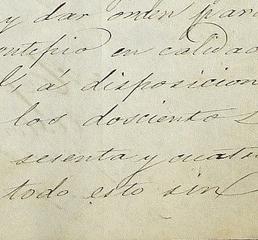 y dar orden para
ontepio en calidad
á disposicion
los doscientos
sesenta y cuatr
todo esto sin